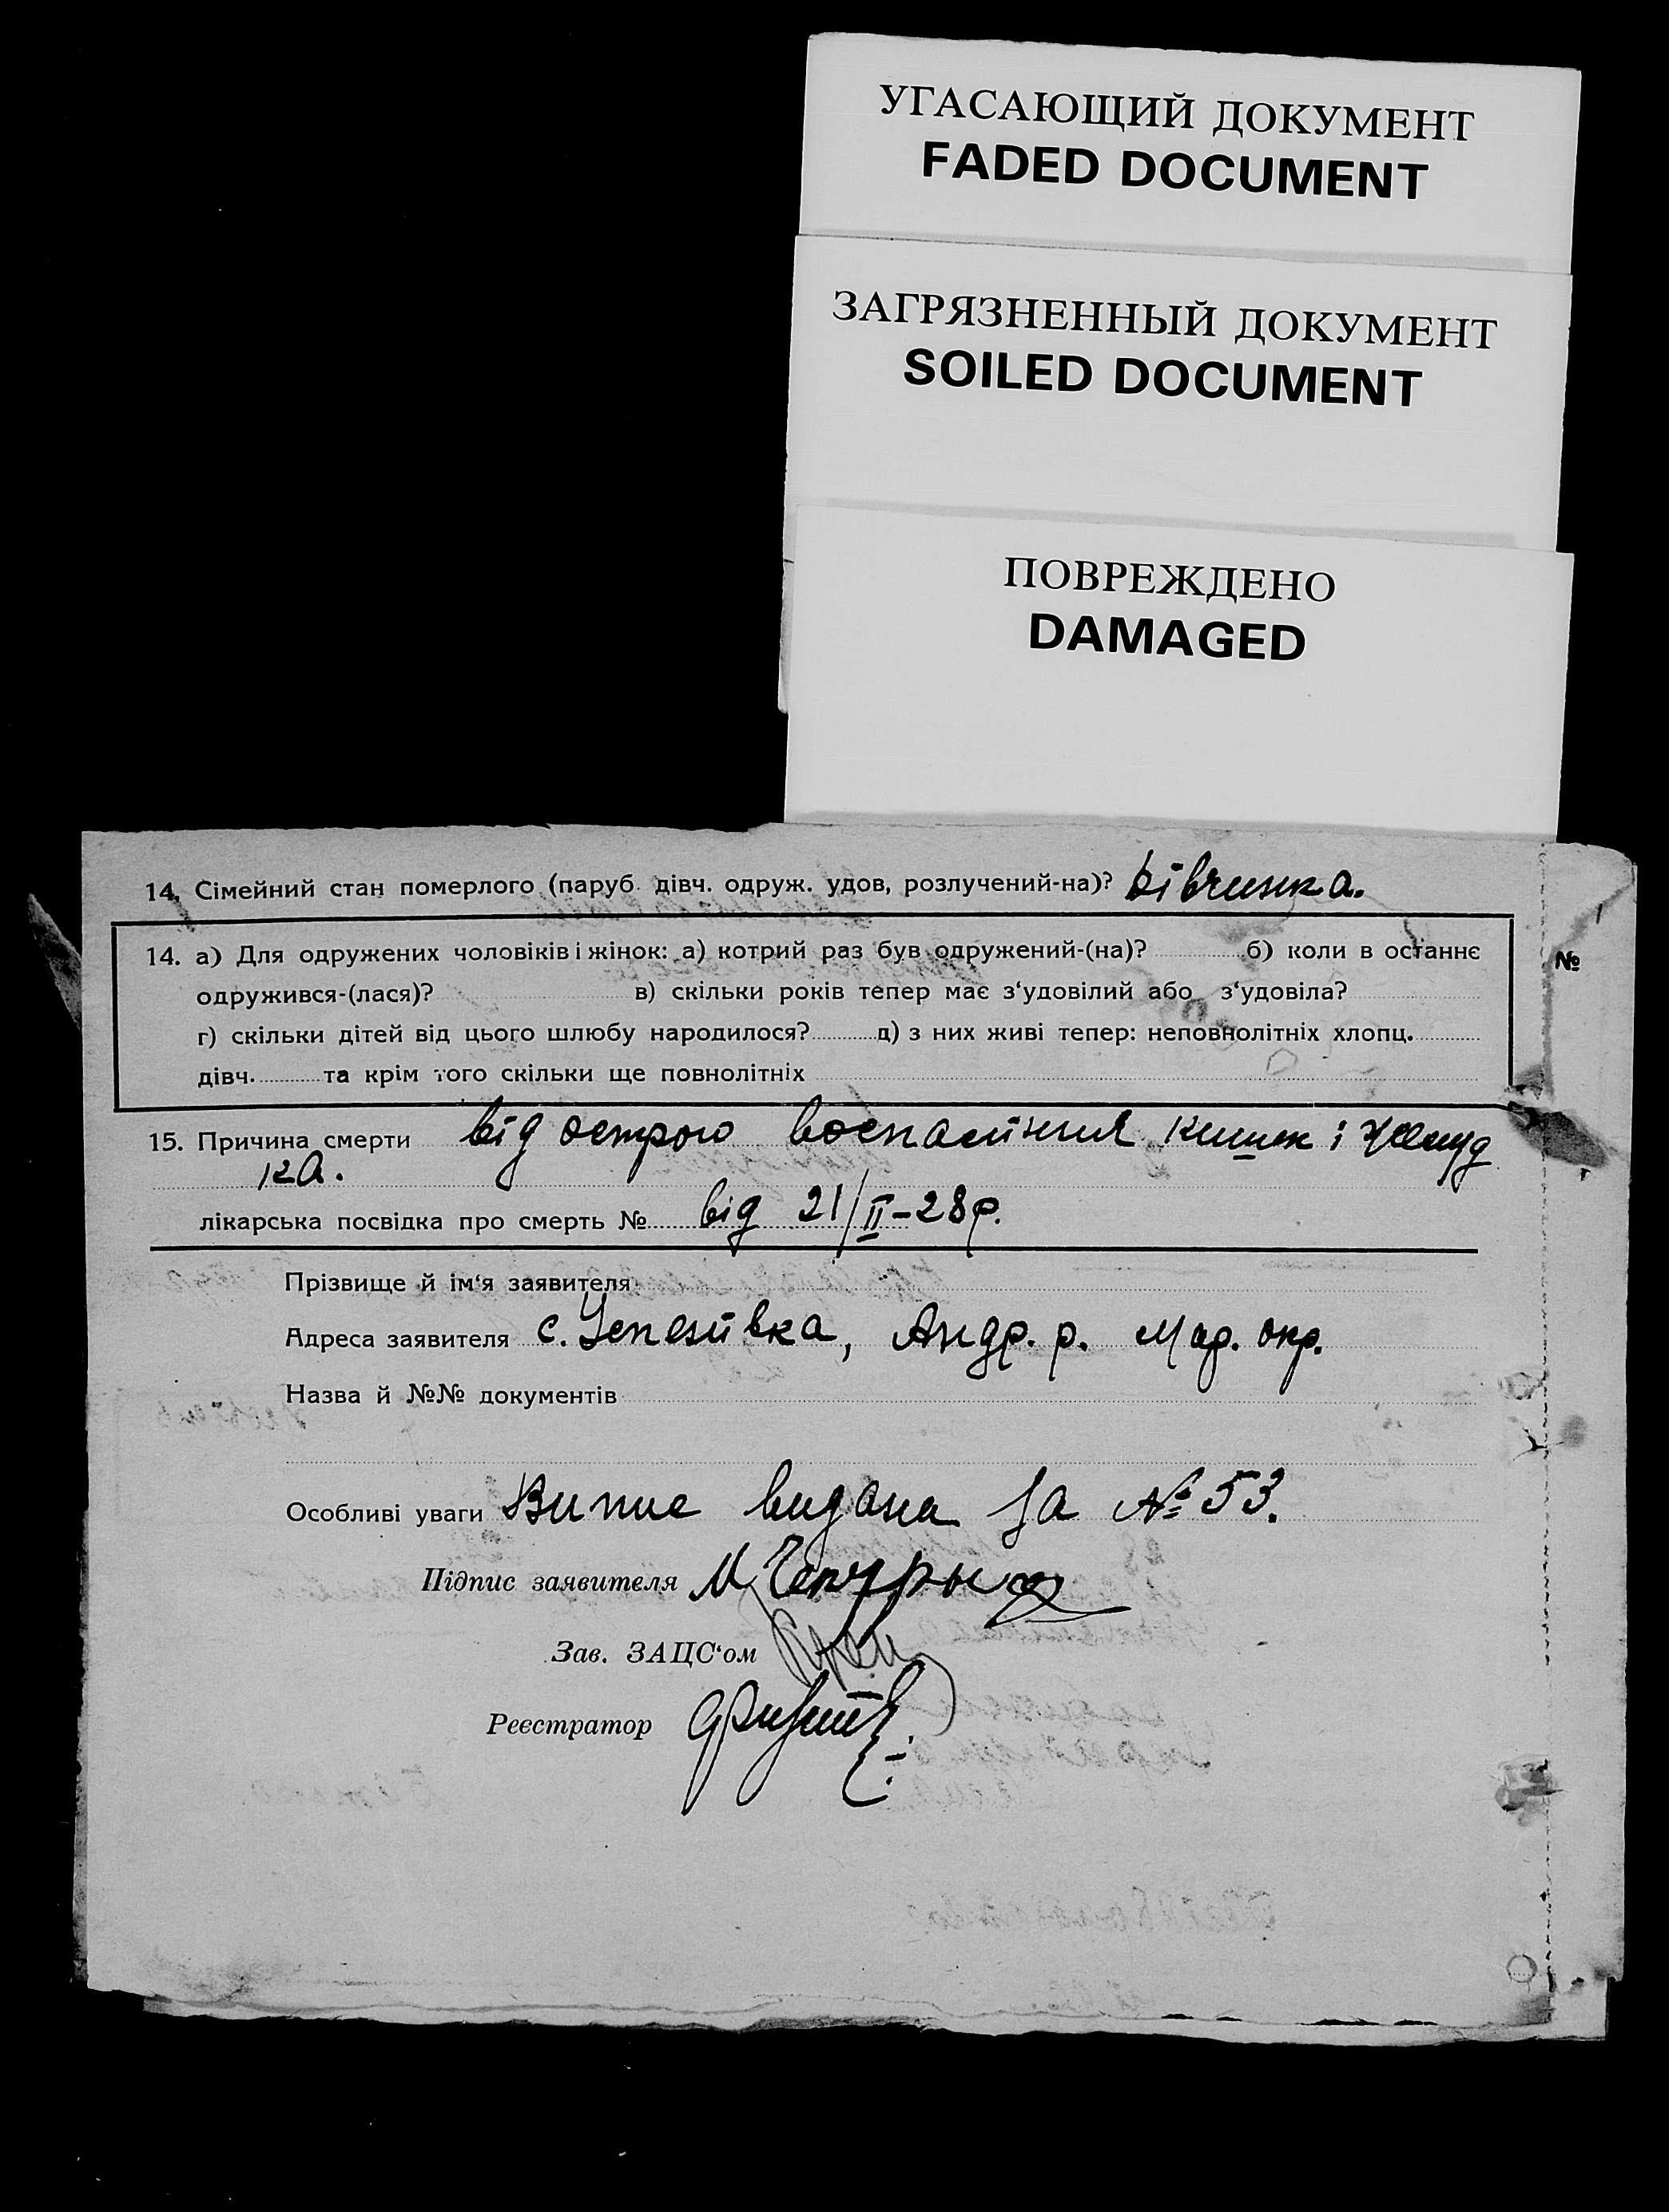 УГАСАЮЩИЙ ДОКУМЕНТ
FADED DOCUMENT
ЗАГРЯЗНЕННЫЙ ДОКУМЕНТ
SOILED DOCUMENT
ПОВРЕЖДЕНО
DAMAGED
14. Сімейний стан померлого (паруб. дівч. одруж. удов, розлучений-на)? Дівчинка.
14. а) Для одружених чоловіків і жінок: а) котрий раз був одружений-(на)? б) коли в останнє
№
одружився-(лася)? в) скільки років тепер має з‘удовілий або з‘удовіла?
г) скільки дітей від цього шлюбу народилося? д) з них живі тепер: неповнолітніх хлопц.
дівч. та крім того скільки ще повнолітніх
15. Причина смерти від острого воспаління кишок і желуд
ка.
лікарська посвідка про смерть № від 21/II-28р.
Прізвище й ім‘я заявителя
Адреса заявителя с. Успенівка, Андр. р. Мар. окр.
Назва й №№ документів
Особливі уваги Випис видана за № 53.
Підпис заявителя М
Зав. ЗАЦС‘ом
Реєстратор